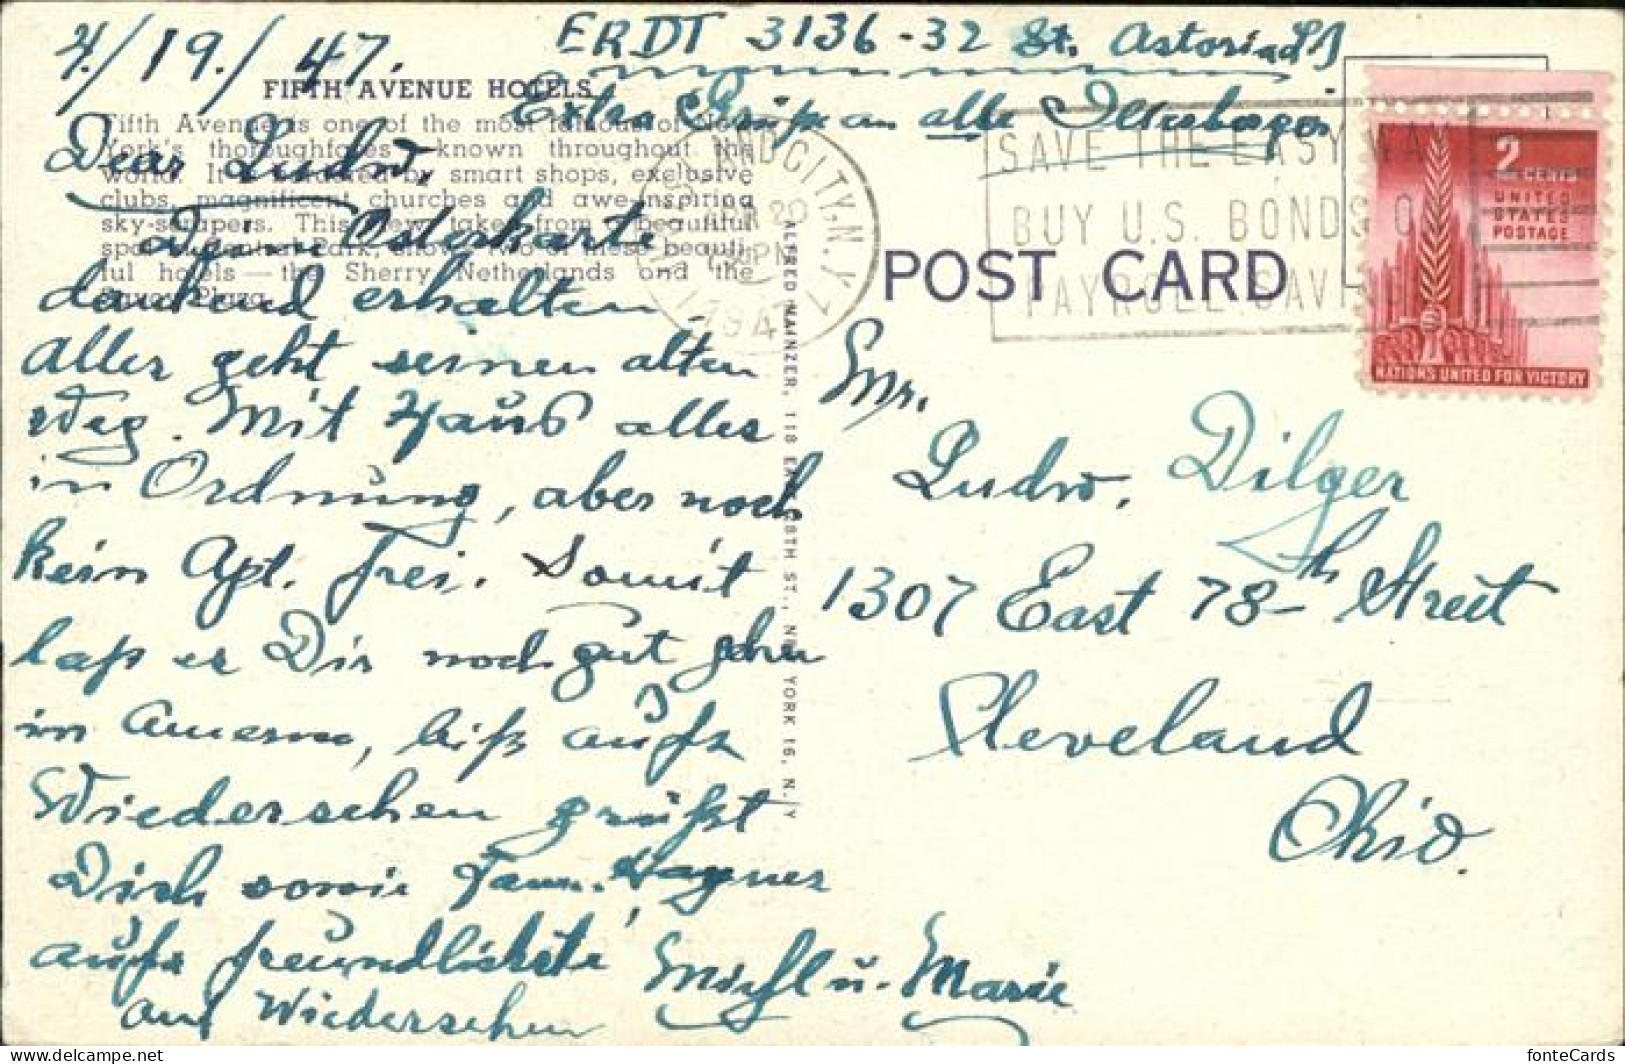 4./19./47.
ERDT 3136-32 St. Astoria L.I.
Extra Grüße an alle
FIFTH AVENUE HOTELS
Fifth Avenue is one of the most famous of New
York's thoroughfares, known throughout the
world. It is bordered by smart shops, exclusive
clubs, magnificent churches and awe-inspiring
sky-scrapers. This view, taken from a beautiful
spot in Central Park, shows two of these beauti-
ful hotels — the Sherry Netherlands and the
Savoy Plaza.
Dear Ludw.
Deine Osterkarte
dankend erhalten
alles geht seinen alten
Weg. Mit Haus alles
in Ordnung, aber noch
kein Apt. frei. Somit
laß es Dir noch gut gehen
in, biß aufs
Wiedersehen grüßt
Dich sowie Fam. Wagner
aufs freundlichste
auf Wiedersehen
Michl u. Marie
ALFRED MAINZER, 118 EAST 28TH ST., NEW YORK 16, N.Y
POST CARD
LONG ISLAND CITY, N.Y. 7
APR 20
PM
1947
SAVE THE EASY WAY
BUY U.S. BONDS
PAYROLL SAVINGS
2
CENTS
UNITED
STATES
POSTAGE
NATIONS UNITED FOR VICTORY
Mr.
Ludw. Dilger
1307 East 78th Street
Cleveland
Ohio.
fonteCards